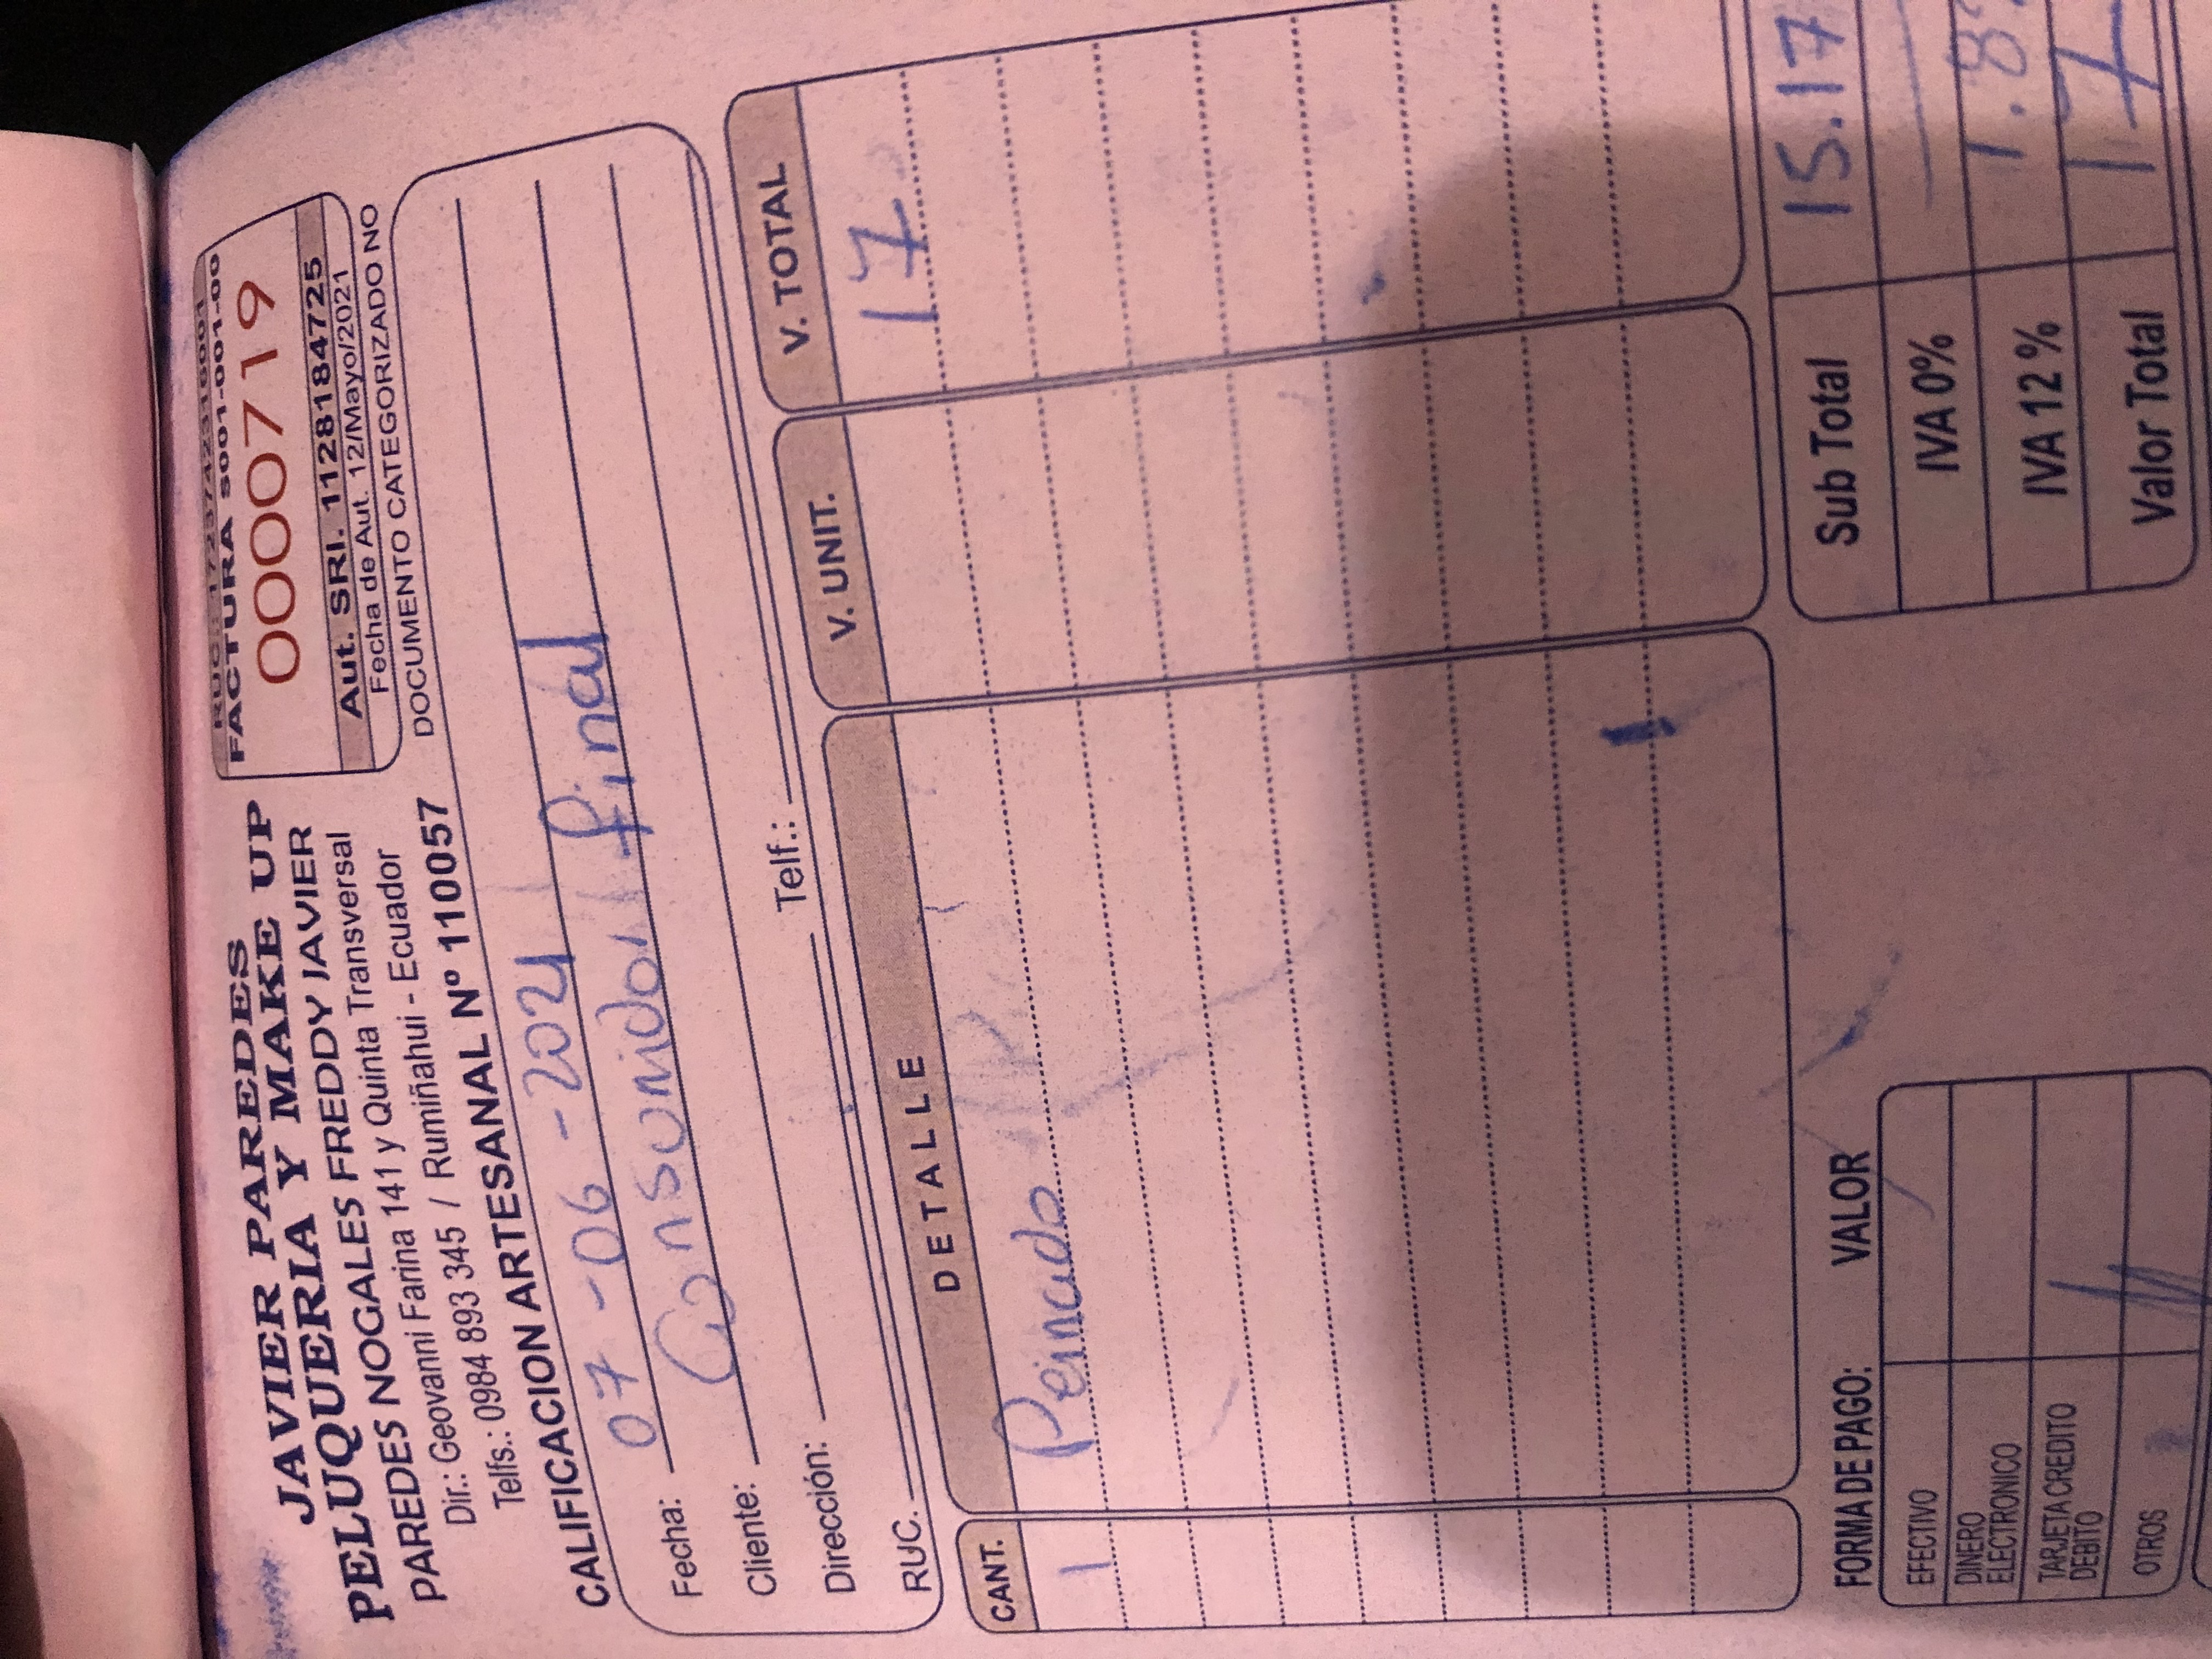 JAVIER PAREDES
PELUQUERIA Y MAKE UP
PAREDES NOGALES FREDDY JAVIER
Dir.: Geovanni Farina 141 y Quinta Transversal
Telfs.: 0984 893 345 / Rumiñahui - Ecuador
CALIFICACION ARTESANAL Nº 110057
RUC.: 1723742316001
FACTURA S001-001-00
0000719
Aut. SRI. 1128184725
Fecha de Aut. 12/Mayo/2021
DOCUMENTO CATEGORIZADO NO
Fecha: 07-06-2021
Cliente: Consumidor final
Dirección:
RUC. Telf.:
CANT. DETALLE V. UNIT. V. TOTAL
1 Peinado 17
FORMA DE PAGO: VALOR
EFECTIVO
DINERO
ELECTRONICO
TARJETA CREDITO
DEBITO
OTROS
Sub Total 15.17
IVA 0%
IVA 12 %
Valor Total 17